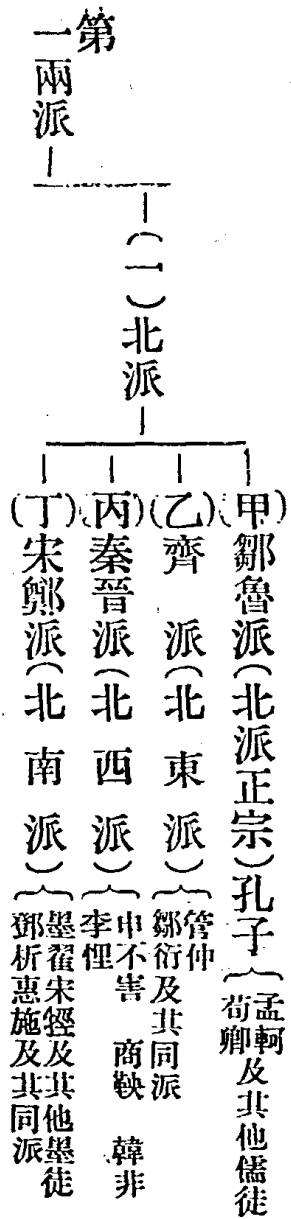 第一兩派
(一)北派
(甲)鄒魯派(北派正宗)孔子{孟軻荀卿及其他儒徒
(乙)齊派(北東派){管仲
鄒衍及其同派
(丙)秦晉派(北西派){申不害 商鞅 韓非
李悝
(丁)宋鄭派(北南派){墨翟宋牼及其他墨徒
鄧析惠施及其同派